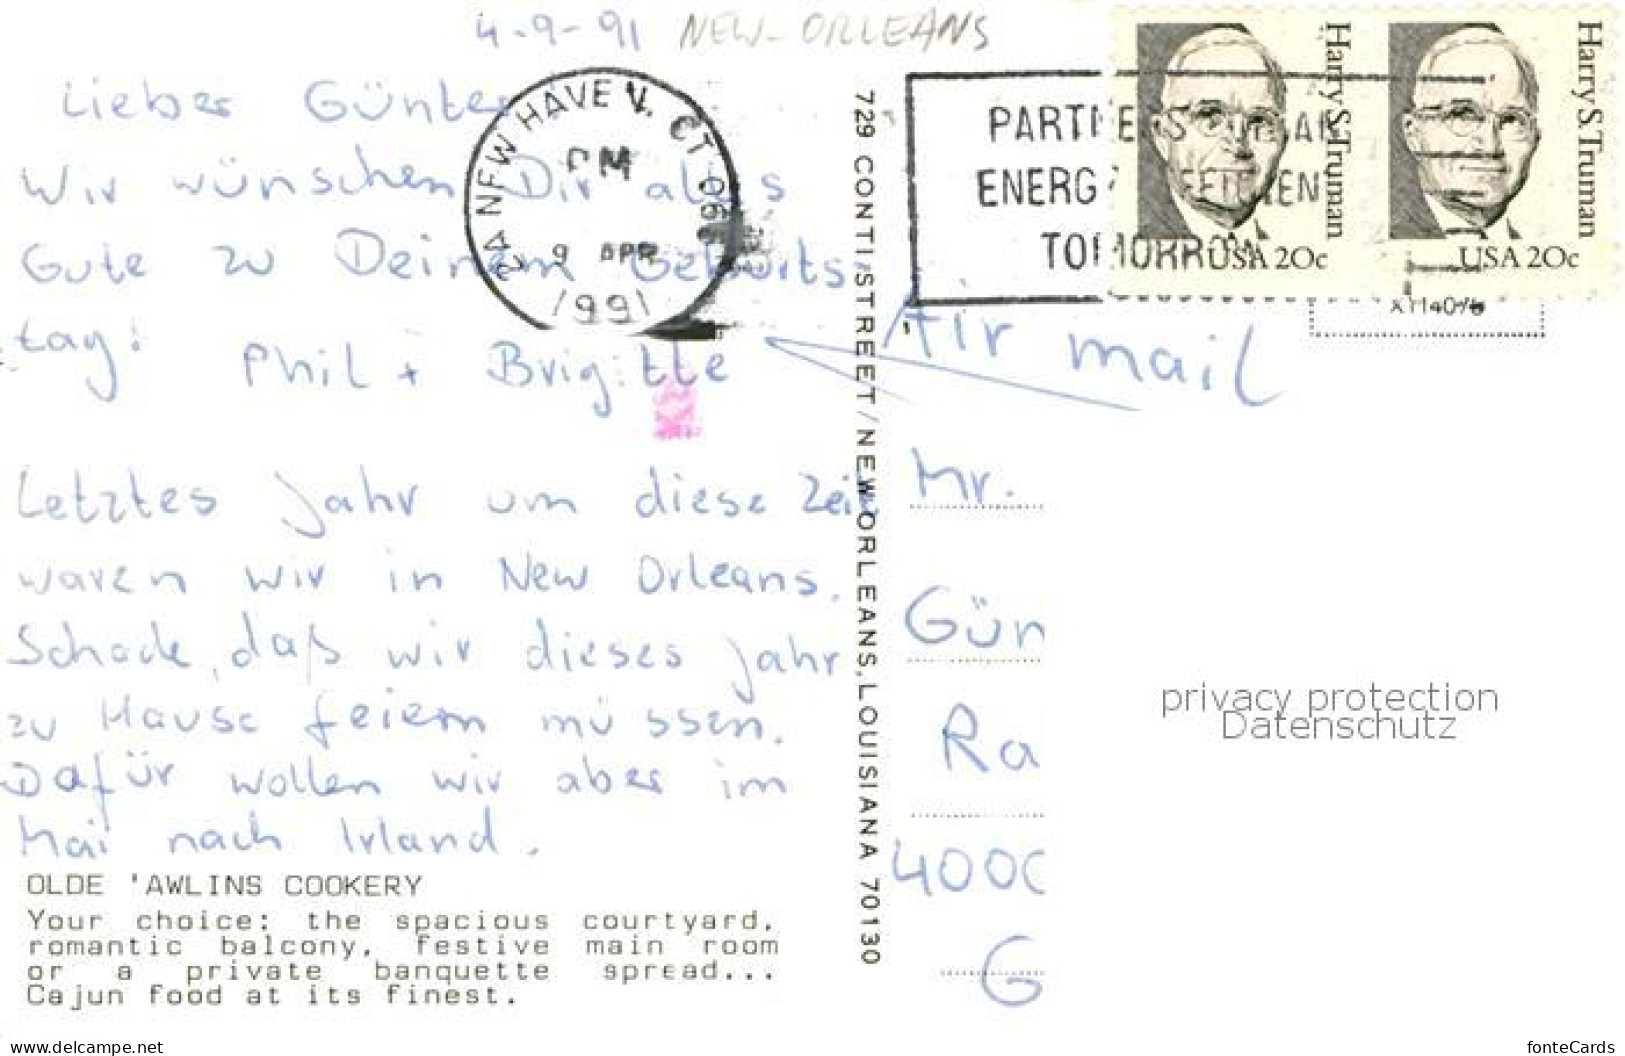 4-9-91 NEW-ORLEANS
Lieber Günter
Wir wünschen Dir alles
Gute zu Deinem Geburts-
tag!
Phil + Brigitte
Letztes Jahr um diese Zeit
waren wir in New Orleans.
Schade, daß wir dieses Jahr
zu Hause feiern müssen.
Dafür wollen wir aber im
Mai nach Irland.
OLDE 'AWLINS COOKERY
Your choice: the spacious courtyard,
romantic balcony, festive main room
or a private banquette spread...
Cajun food at its finest.
NEW HAVEN, CT
PM
9 APR
1991
729 CONTI STREET/NEW ORLEANS, LOUISIANA 70130
ENERGY
TOMORROW
Harry S. Truman
USA 20c
Harry S. Truman
USA 20c
Air mail
Mr.
Gün
Ra
4000
G
privacy protection
Datenschutz
www.delcampe.net
fonteCards